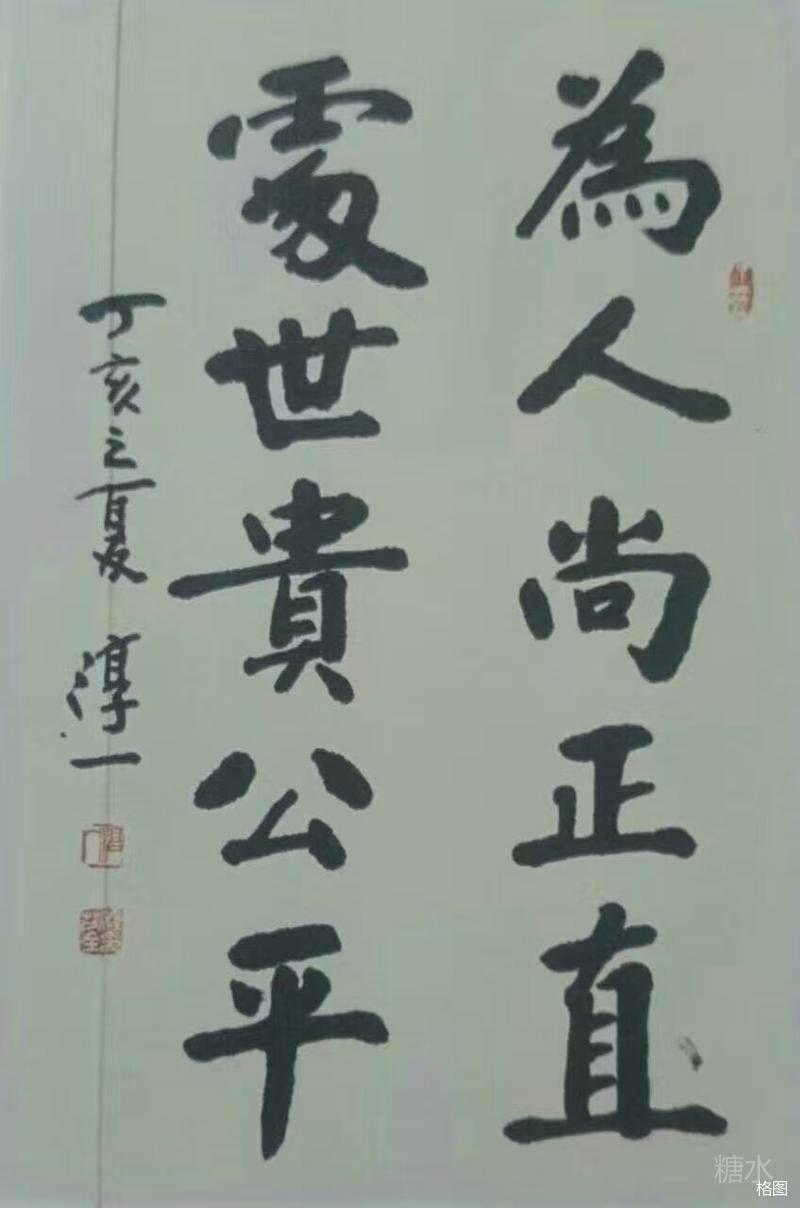 為人尚正直
處世貴公平
丁亥之夏 淳一
糖水
格图